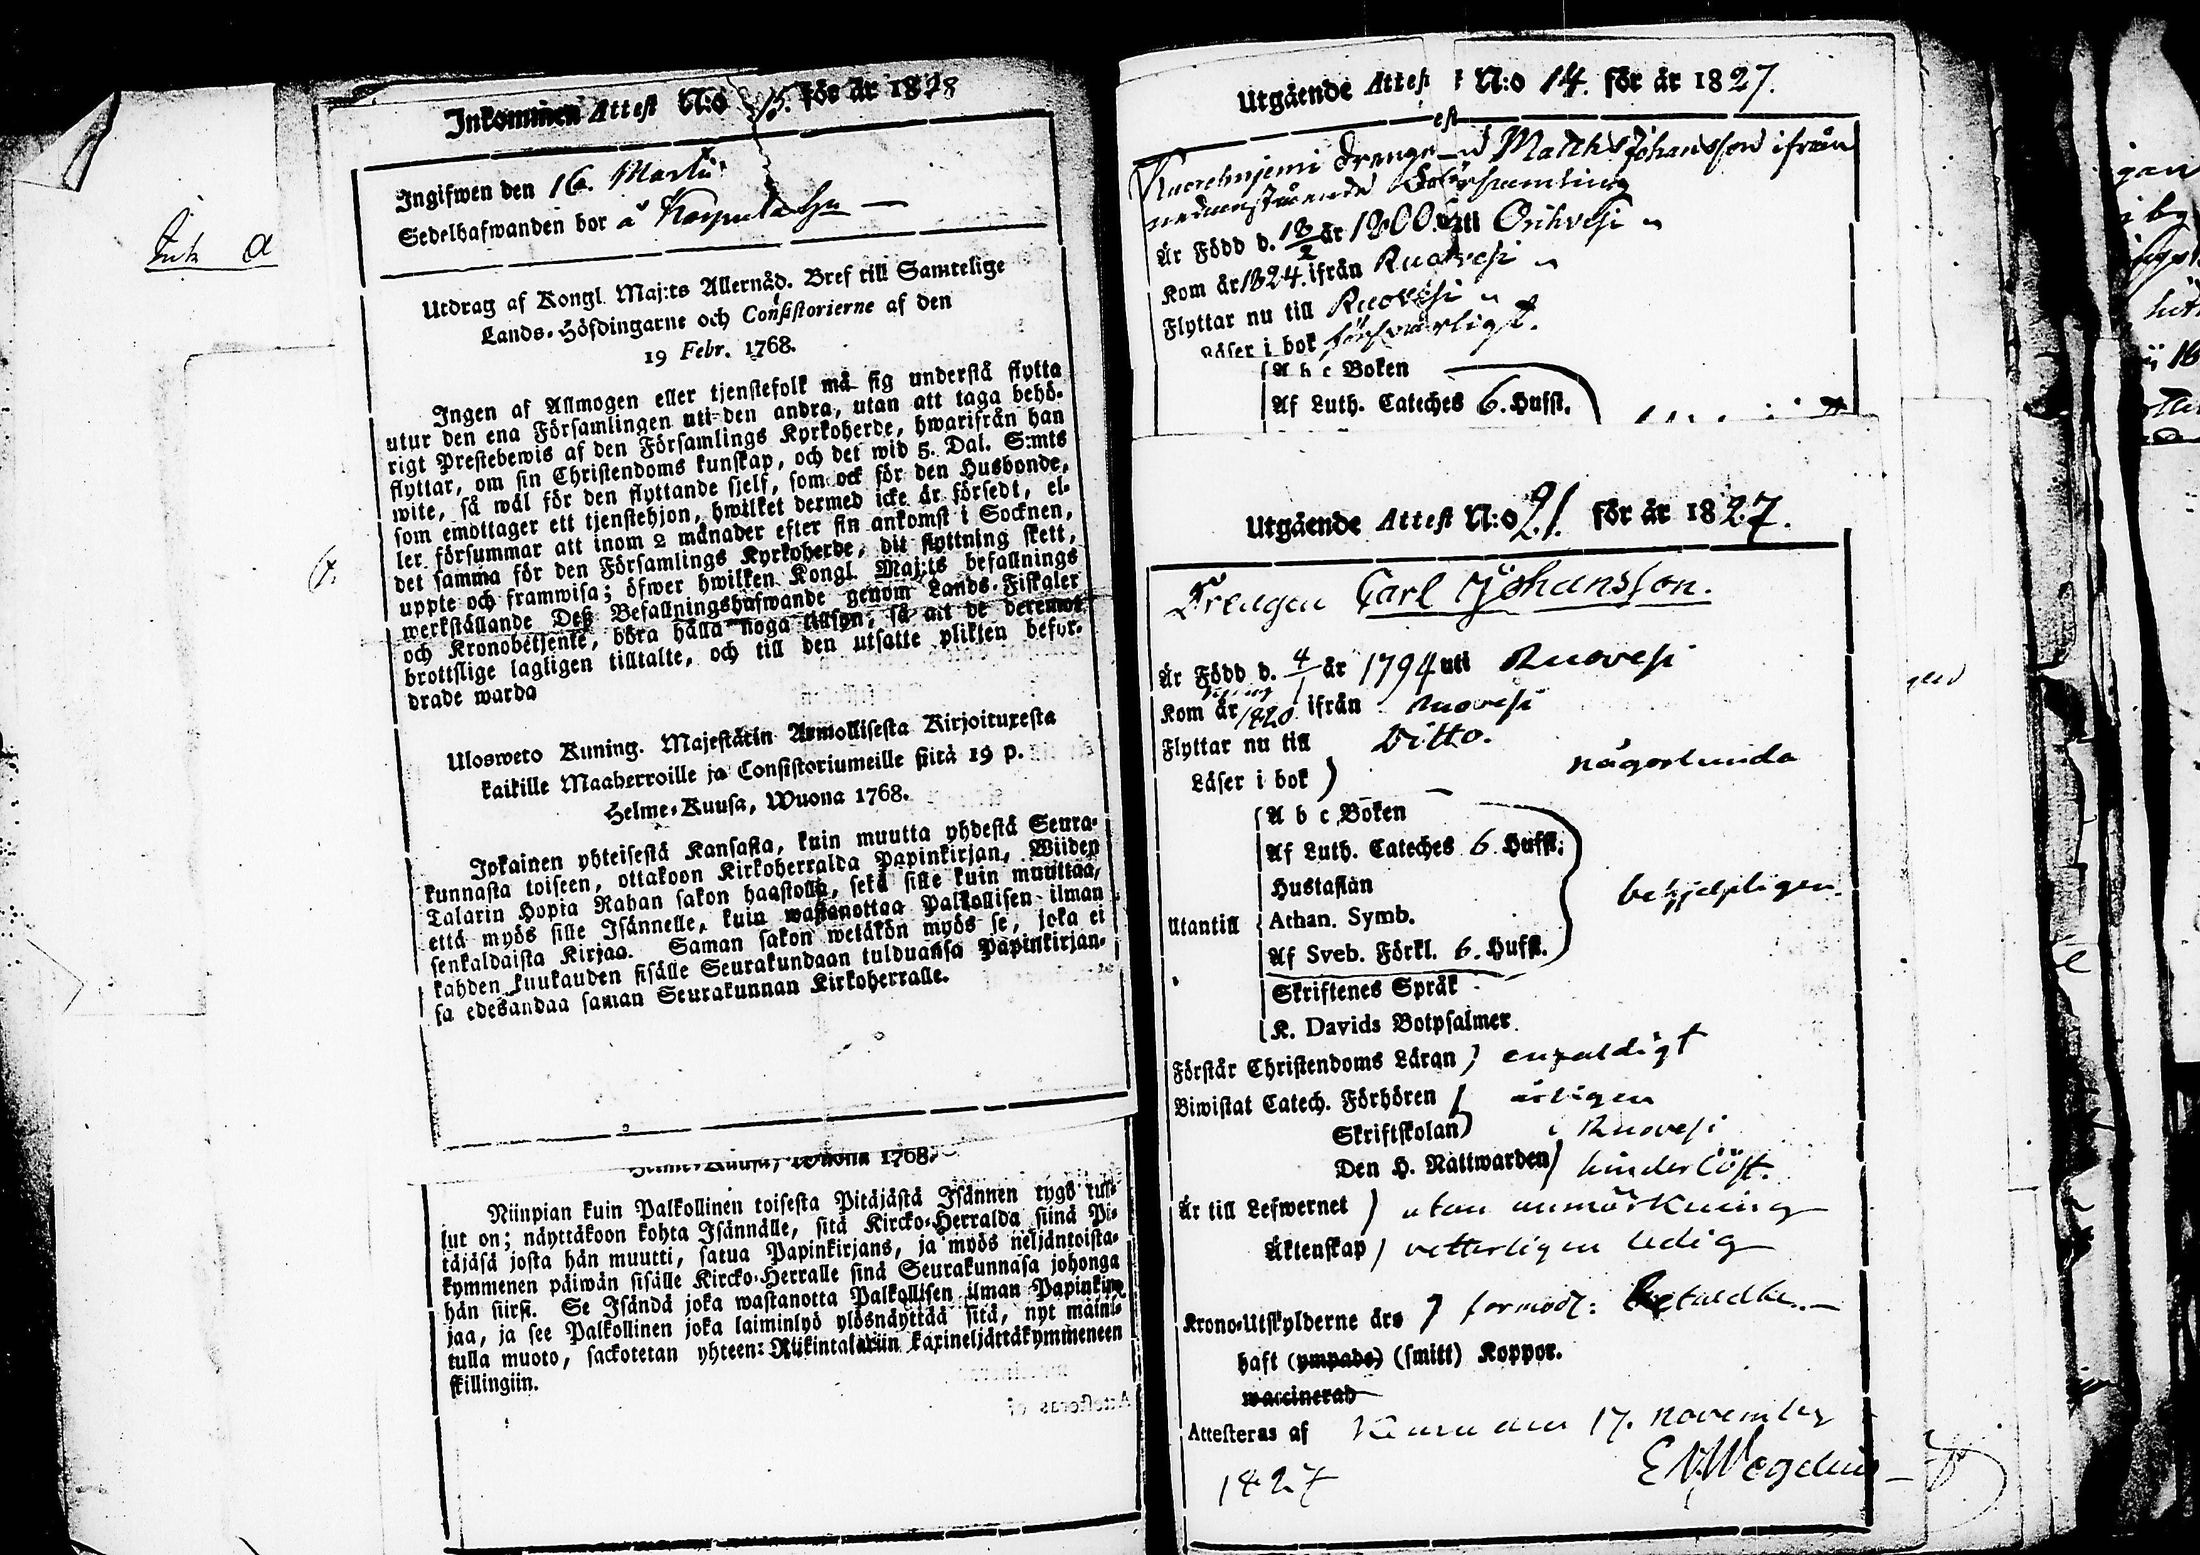 Inkommen Attest N:o 15. för år 1828
Ingifwen den 16. Martii
Sedelhafwanden bor å
Utdrag af Kongl. Maj:ts Allernåd. Bref till Samtelige
Lands-Höfdingarne och Consistorierne af den
19 Febr. 1768.
Ingen af Allmogen eller tjenstefolk må sig understå flytta
utur den ena Församlingen uti den andra, utan att taga behö-
rigt Prestebewis af den Församlings Kyrkoherde, hwarifrån han
flyttar, om sin Christendoms kunskap, och det wid 5. Dal. S:mts
wite, så wäl för den flyttande sjelf, som ock för den Husbonde,
som emottager ett tjenstehjon, hwilket dermed icke är försedt, el-
ler försummar att inom 2 månader efter sin ankomst i Socknen,
det samma för den Församlings Kyrkoherde, dit flyttning skett,
uppte och framwisa; öfwer hwilken Kongl. Maj:ts befallnings
werkställande Deß Befallningshafwande genom Lands-Fiskaler
och Kronobetjente, böra hålla noga tillsyn, så att de deremot
brottslige lagligen tilltalte, och till den utsatte plikten befor-
drade warda
Ulosweto Kuning. Majestätin Armollisesta Kirjoituxesta
kaikille Maaherroille ja Consistoriumeille siitä 19 p.
Helme-Kuusa, Wuona 1768.
Jokainen yhteisestä Kansasta, kuin muutta yhdestä Seura-
kunnasta toiseen, ottakoon Kirkoherralda Papinkirjan, Wiiden
Talarin Hopia Rahan sakon haastolla, sekä sille kuin muuttaa,
että myös sille Isännelle, kuin wastanottaa Palkollisen ilman
senkaldaista Kirjaa. Saman sakon wetäkön myös se, joka ei
kahden kuukauden sisälle Seurakundaan tulduansa Papinkirjan-
sa edesandaa saman Seurakunnan Kirkoherralle.
Helme-Kuusa, Wuona 1768.
Niinpian kuin Palkollinen toisesta Pitäjästä Isännen tygö tul-
lut on; näyttäkoon kohta Isännälle, sitä Kircko-Herralda siinä Pi-
täjäsä josta hän muutti, satua Papinkirjans, ja myös neljäntoista-
kymmenen päiwän sisälle Kircko-Herralle sinä Seurakunnasa johonga
hän siirsi. Se Isändä joka wastanotta Palkollisen ilman Papinkir-
jaa, ja see Palkollinen joka laiminlyö ylösnäyttää sitä, nyt maini-
tulla muoto, sackotetan yhteen: Riikintalariin kaxineljättäkymmeneen
skillingiin.
Utgående Attest N:o 14. för år 1827.
Drengen Matths Johansson ifrån
nedanstående Församling
Är Född d. 18/2 år 1800. uti Orihvesi
Kom år 1824. ifrån Ruovesi
Flyttar nu till Ruovesi
Läser i bok försvarligt.
A b c Boken
Af Luth. Cateches 6. Hufst.
Utgående Attest N:o 21. för år 1827.
Drengen Carl Johansson.
Är Född d. 4/1 år 1794 uti Ruovesi
Kom år 1820 ifrån Ruovesi
Flyttar nu till Ditto.
Läser i bok ) någorlunda
A b c Boken
Af Luth. Cateches 6. Hufst.
Hustaflan
Utantill Athan. Symb. behjelpligen.
Af Sveb. Förkl. 6. Hufst.
Skriftenes Språk
K. Davids Botpsalmer
Förstår Christendoms Läran ) enfaldigt
Biwistat Catech. Förhören ) årligen
Skriftskolan ) i Ruovesi
Den H. Nattwarden ) hinderlöst.
Är till Lefwernet ) utan anmärkning
Äktenskap ) vetterligen ledig
Krono-Utskylderne äro ) förmod: Betaldte.
haft (ympade) (smitt) Koppor.
waccinerad
Attesteras af Kuru den 17. November
1827 E. N. Wegelius